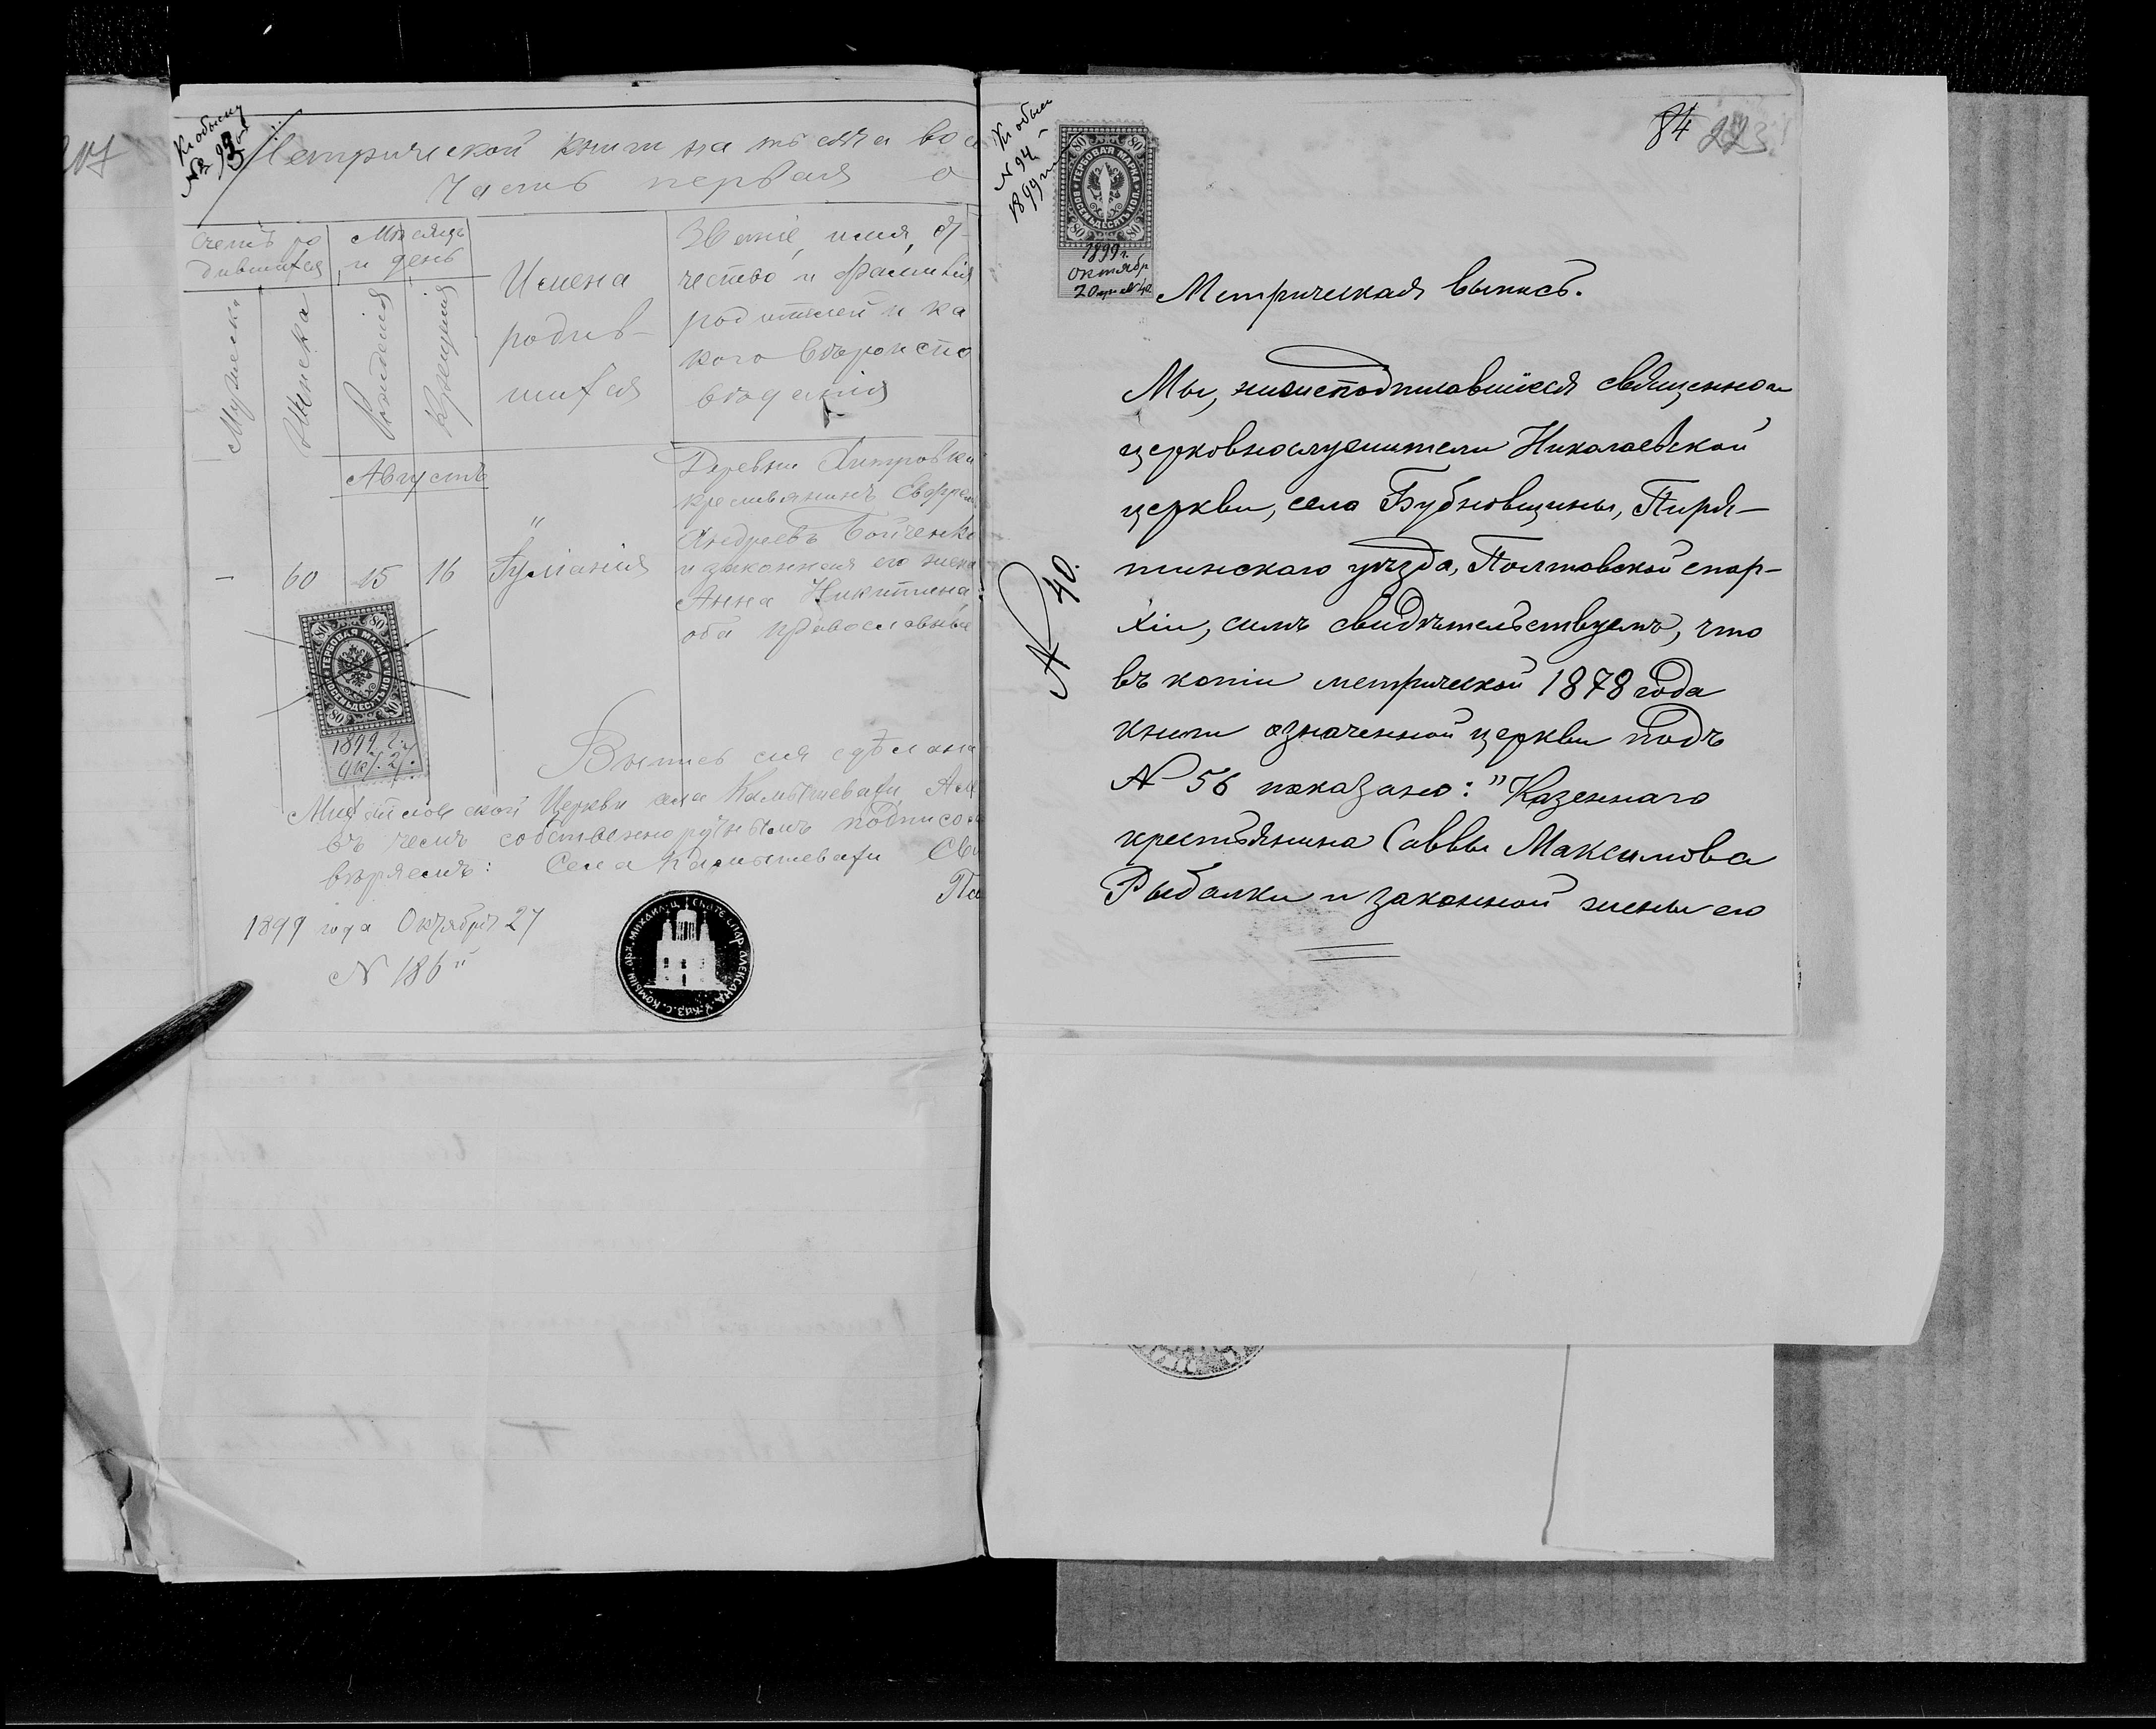 Къ обыску
№ 93
Метрической книги на тысяча вос
Часть первая о
Счетъ ро
дившихся
Мѣсяцъ
и день
Мужеска
Женска
Рожденія
Крещенія
Имена
родив-
шихся
Званіе, имя, от-
чество и фамилія
родителей и ка
кого вѣроиспо
вѣданія
Августъ
– 60 15 16
Іуліанія
Деревни Петровки
крестьянинъ
Андреевъ Бойченко
и законная его жена
Анна Никитина
оба православные
80 80
ГЕРБОВАЯ МАРКА
ВОСЕМЬДЕСЯТЪ КОП.
80 80
1899 г.
Окт. 27.
Выпись сія сдѣлана
Церкви села Камышевахи, Алек
въ чемъ собственноручнымъ подписо
вѣряемъ: Села Камышевахи Св
Пс
1899 года Октября 27
№ 186й
Къ обыску
№ 94
1899 г.
80 80
ГЕРБОВАЯ МАРКА
ВОСЕМЬДЕСЯТЪ КОП.
80 80
1899 г.
Октябр
20
84 223
Метрическая выпись.
№ 40.
Мы, нижеподписавшіеся священно и
церковнослужители Николаевской
церкви, села Бубновщины, Пиря-
тинскаго уѣзда, Полтавской епар-
хіи, симъ свидѣтельствуемъ, что
въ копіи метрической 1878 года
книги означенной церкви подъ
№ 56 показано: "Казеннаго
крестьянина Саввы Максимова
Рыбалки и законной жены его